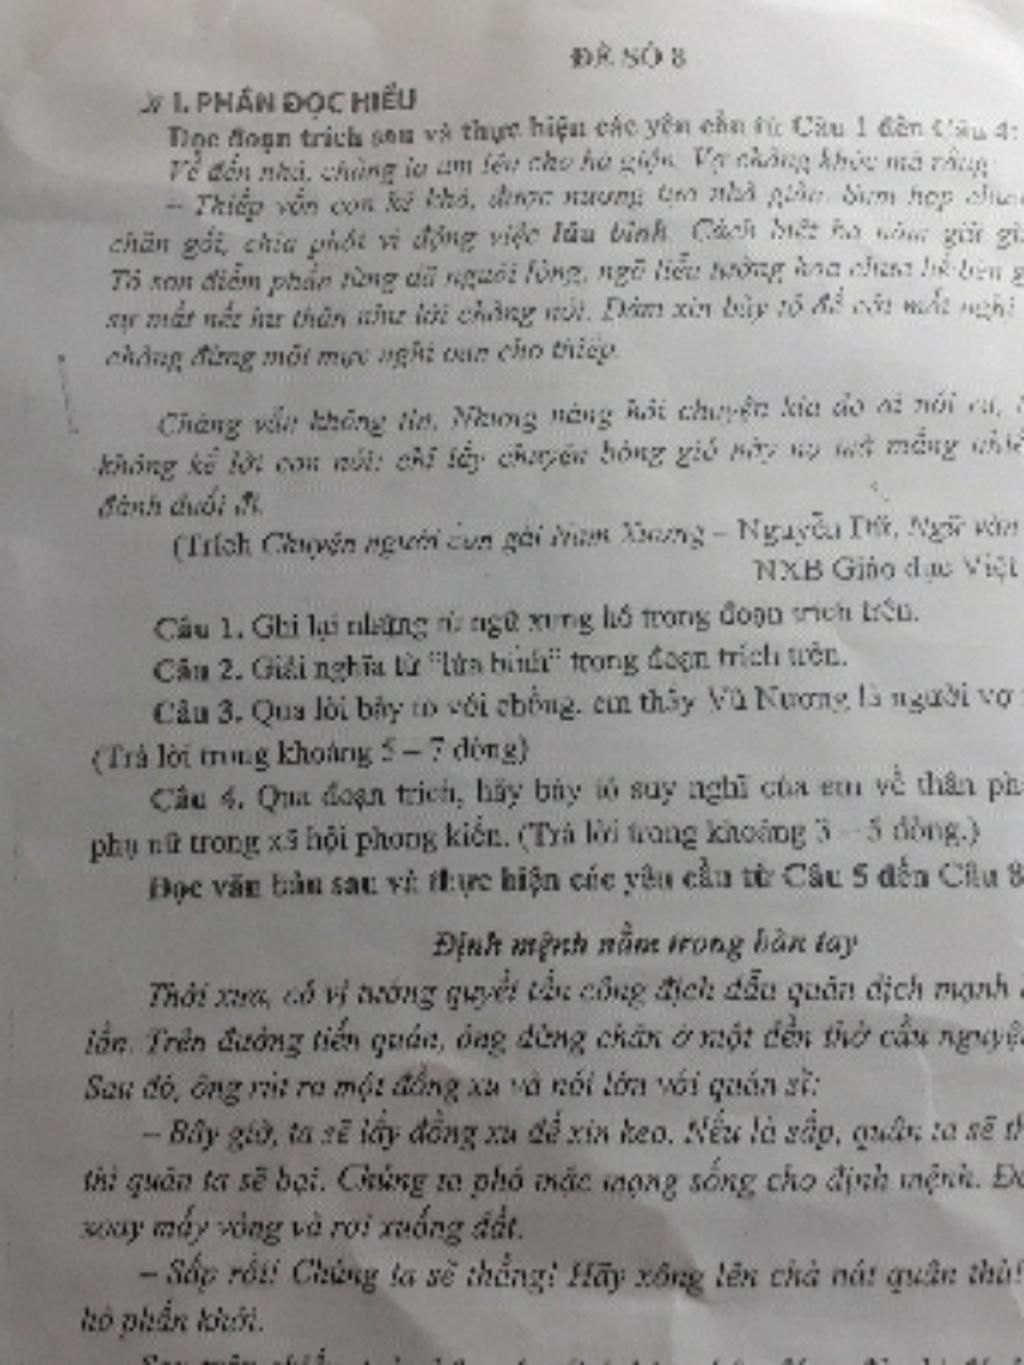 ĐỀ SỐ 8
I. PHẦN ĐỌC HIỂU
Đọc đoạn trích sau và thực hiện các yêu cầu từ Câu 1 đến Câu 4:
Về đến nhà, chàng la um lên cho hả giận. Vợ chàng khóc mà rằng:
– Thiếp vốn con kẻ khó, được nương tựa nhà giàu. Sum họp chưa
chăn gối, chia phôi vì động việc lửa binh. Cách biệt ba năm giữ gì
Tô son điểm phấn từng đã nguôi lòng, ngõ liễu tường hoa chưa hề bén g
sự mất nết hư thân như lời chàng nói. Dám xin bày tỏ để cởi mối nghi
chàng đừng một mực nghi oan cho thiếp.
Chàng vẫn không tin. Nhưng nàng hỏi chuyện kia do ai nói ra,
không kể lời con nói; chỉ lấy chuyện bóng gió này nọ mà mắng nhiế
đánh đuổi đi.
(Trích Chuyện người con gái Nam Xương – Nguyễn Dữ, Ngữ văn
NXB Giáo dục Việt
Câu 1. Ghi lại những từ ngữ xưng hô trong đoạn trích trên.
Câu 2. Giải nghĩa từ "lửa binh" trong đoạn trích trên.
Câu 3. Qua lời bày tỏ với chồng, em thấy Vũ Nương là người vợ
(Trả lời trong khoảng 5 – 7 dòng)
Câu 4. Qua đoạn trích, hãy bày tỏ suy nghĩ của em về thân ph
phụ nữ trong xã hội phong kiến. (Trả lời trong khoảng 3 – 5 dòng.)
Đọc văn bản sau và thực hiện các yêu cầu từ Câu 5 đến Câu 8
Định mệnh nằm trong bàn tay
Thời xưa, có vị tướng quyết tấn công địch dẫu quân địch mạnh
lần. Trên đường tiến quân, ông dừng chân ở một đền thờ cầu nguyệ
Sau đó, ông rút ra một đồng xu và nói lớn với quân sĩ:
– Bây giờ, ta sẽ lấy đồng xu để xin keo. Nếu là sấp, quân ta sẽ th
thì quân ta sẽ bại. Chúng ta phó mặc mạng sống cho định mệnh. Đ
xoay mấy vòng và rơi xuống đất.
– Sấp rồi! Chúng ta sẽ thắng! Hãy xông lên chà nát quân thù!
hò phấn khởi.